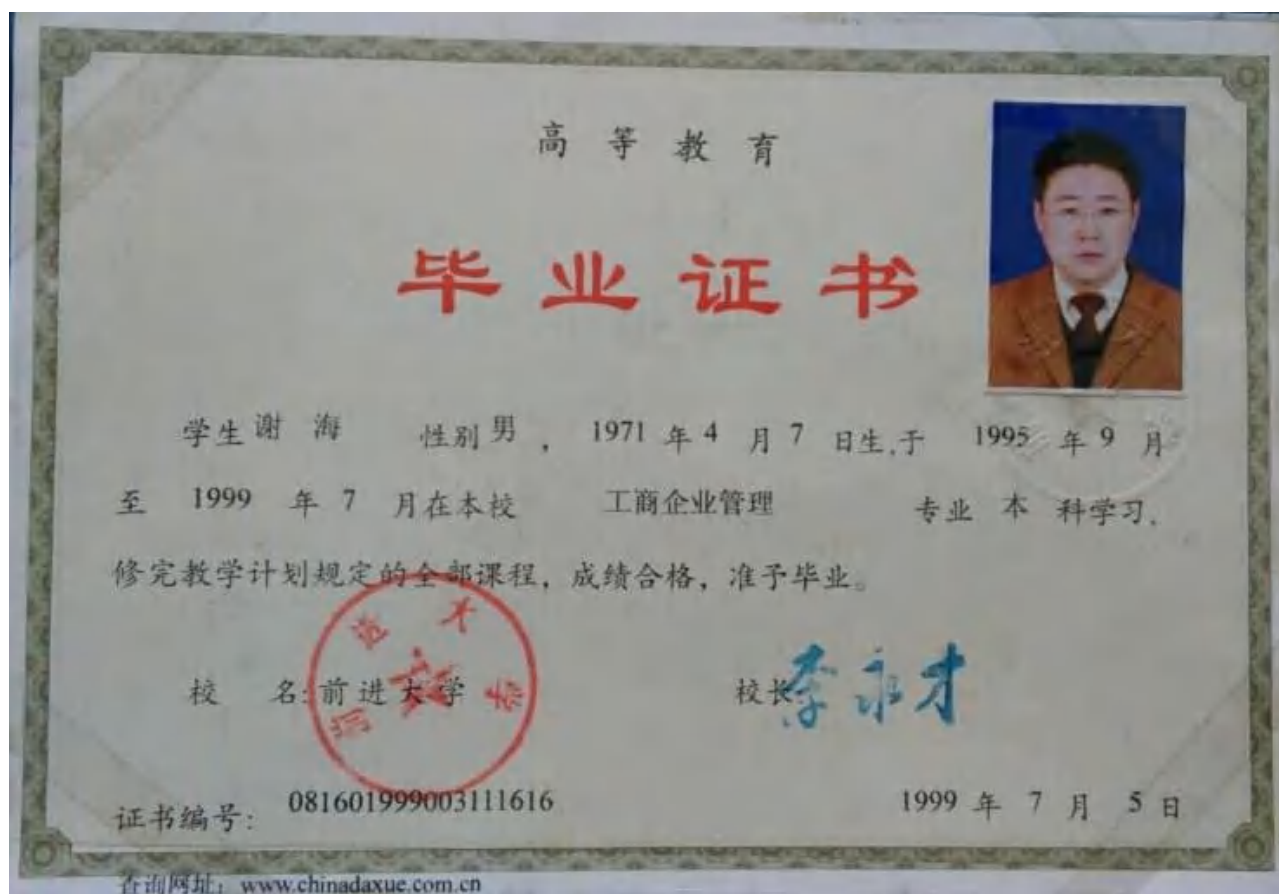 高等教育
毕业证书
学生 谢 海 性别 男 , 1971 年 4 月 7 日生,于 1995 年 9 月
至 1999 年 7 月在本校 工商企业管理 专业 本 科学习,
修完教学计划规定的全部课程，成绩合格，准予毕业。
校 名:前进大学 校长 李永才
前进大学
证书编号: 081601999003111616 1999 年 7 月 5 日
查询网址: www.chinadaxue.com.cn